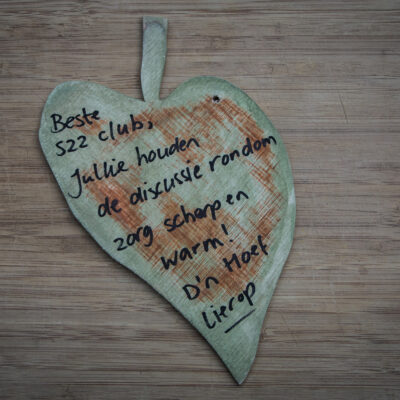 Beste
S22 club,
Jullie houden
de discussie rondom
zorg scherp en
warm!
D'n Hoef
Lierop